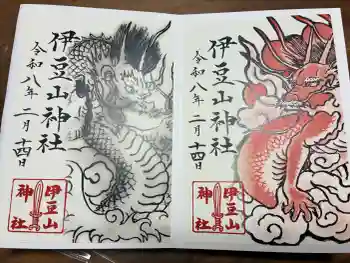 伊豆山神社
令和八年 二月 十四日
伊豆山
神社
伊豆山神社
令和八年 二月 十四日
伊豆山
神社